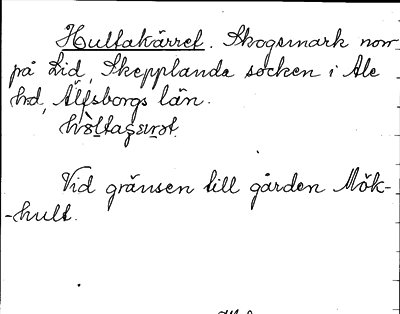 Hultakärret. Skogsmark norr
på Lid, Skepplanda socken i Ale
hd, Älfsborgs län.
Vid gränsen till gården Mök-
-hult.